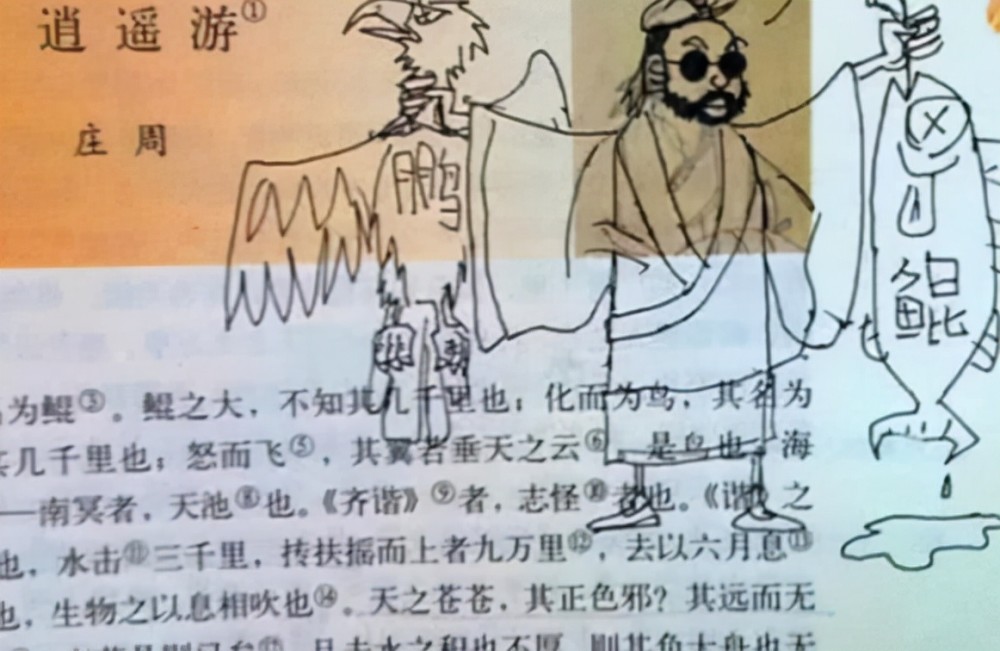 逍遥游①
庄周
鹏
鲲
为鲲③。鲲之大，不知其几千里也；化而为鸟，其名为
其几千里也；怒而飞⑤，其翼若垂天之云⑥。是鸟也，海
——南冥者，天池⑧也。《齐谐》⑨者，志怪⑩者也。《谐》之
也，水击⑪三千里，抟扶摇而上者九万里⑫，去以六月息⑬
也，生物之以息相吹也⑭。天之苍苍，其正色邪？其远而无
且夫水之积也不厚，则其负大舟也无